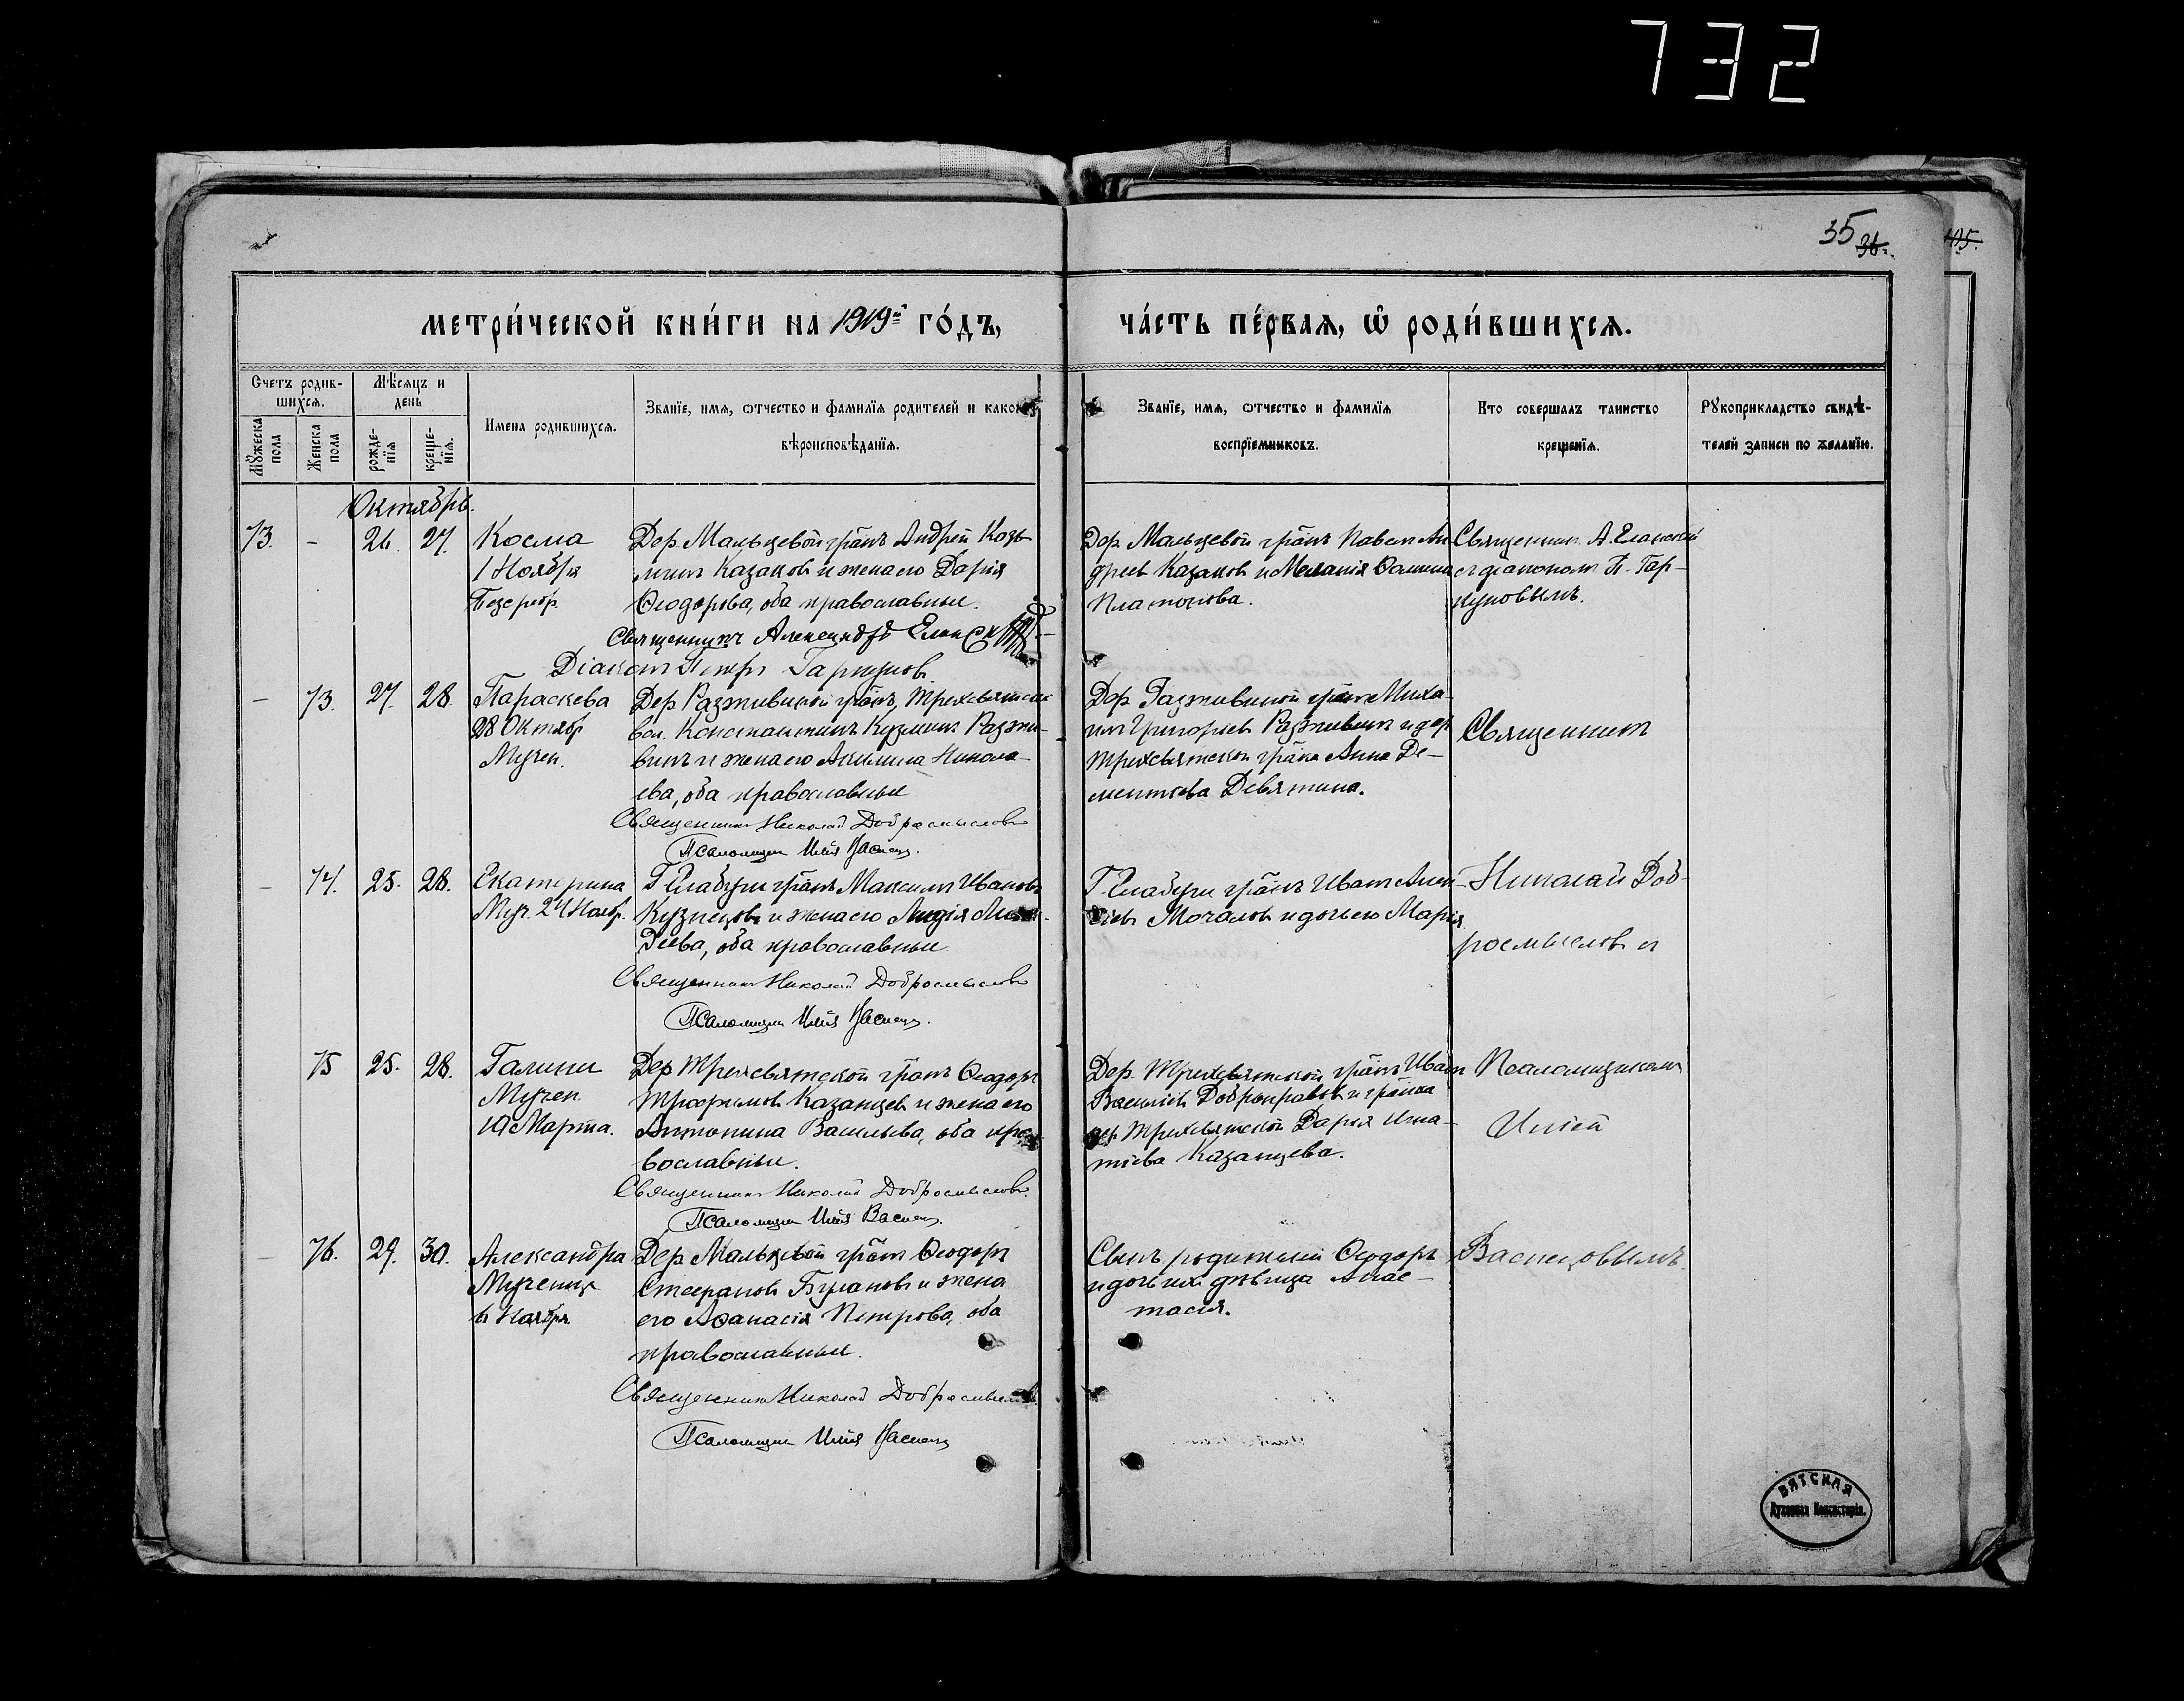 732
35 36.
105.
МЕТРИ́ЧЕСКОЙ КНИ́ГИ НА 1919й ГО́ДЪ,
ЧА́СТЬ ПЕ́РВАЯ, Ѿ РОДИ́ВШИХСЯ.
Счетъ родившихся.
Мѣсяцъ и день
Мужеска пола
Женска пола
рожденія
крещенія.
Имена родившихся.
Званіе, имя, отчество и фамилія родителей и какого
вѣроисповѣданія.
Званіе, имя, отчество и фамилія
воспріемниковъ.
Кто совершалъ таинство
крещенія.
Рукоприкладство свидѣ-
телей записи по желанію.
Октябрь.
73. - 26. 27. Косма
1 Ноября
Безсребр.
Дер. Мальцевой гр-нъ Андрей Козь-
минъ Казаковъ и жена его Дарія
Ѳеодорова, оба православные.
Священникъ Александръ Еланск
Діаконъ Петръ Гаркуновъ.
Дер. Мальцевой гр-нъ Павелъ Ан-
дреевъ Казаковъ и Меланія
Платонова.
Священник А. Еланский
с діакономъ П. Гар-
куновымъ.
- 73. 27. 28. Параскева
28 Октябр
Мучен.
Дер. Разживиной гр-нъ, Трехсвятск
вол. Константинъ Кузминъ Разжи-
винъ и жена его Акилина Никола-
ева, оба православные
Священник Николай Добросмыслов
Псаломщик Илія Васнец.
Дер. Разживиной гр-нъ Миха-
илъ Григорьев Разживинъ и дер.
Трехсвятской гр-ка Анна Де-
ментьева Девятина.
Священник
- 74. 25. 28. Екатерина
Муч. 24 Нояб.
Г. Елабуги гр-нъ Максимъ Ивановъ
Кузнецовъ и жена его Лидія
оба православные
Священник Николай Добросмыслов
Псаломщик Илія Васнец.
Г. Елабуги гр-нъ Иван
Мочалов и дочь его Марія.
Николай Доб-
росмыслов с
75 25. 28. Галини
Мучен.
10 Марта.
Дер Трехсвятской гр-нъ Ѳеодоръ
Трофимовъ Казанцев и жена его
Антонина Васильева, оба пра-
вославные.
Священник Николай Добросмыслов.
Псаломщик Илія Васнец.
Дер. Трехсвятской гр-нъ Иван
Васильев Добронравов и гр-нка
дер. Трехсвятской Дарья Игна-
тіева Казанцева.
Псаломщиком
Иліей
- 76. 29. 30. Александра
Мучениц
6 Ноября.
Дер Мальцевой гр-нъ Ѳеодоръ
Стефанов Бурановъ и жена
его Аѳанасія Петрова, оба
православные.
Священник Николай Добросмыслов
Псаломщик Илія Васнец
Сынъ родителей Ѳеодоръ
и дочь их дѣвица Анас-
тасія.
Васнецовымъ.
ВЯТСКАЯ
Духовная Консисторія.